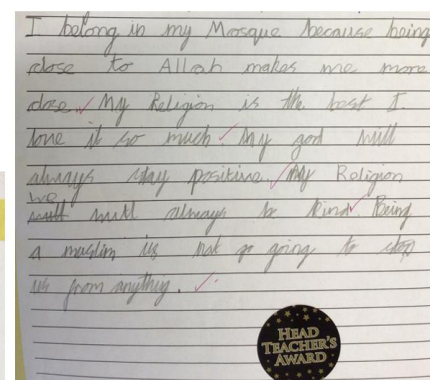 I belong in my Mosque because being
close to Allah makes me more
close. My Religion is the best I
love it so much My god will
always stay positive. My Religion
we
will always be kind Being
a muslim is not go going to stop
us from anything.
HEAD
TEACHER'S
AWARD